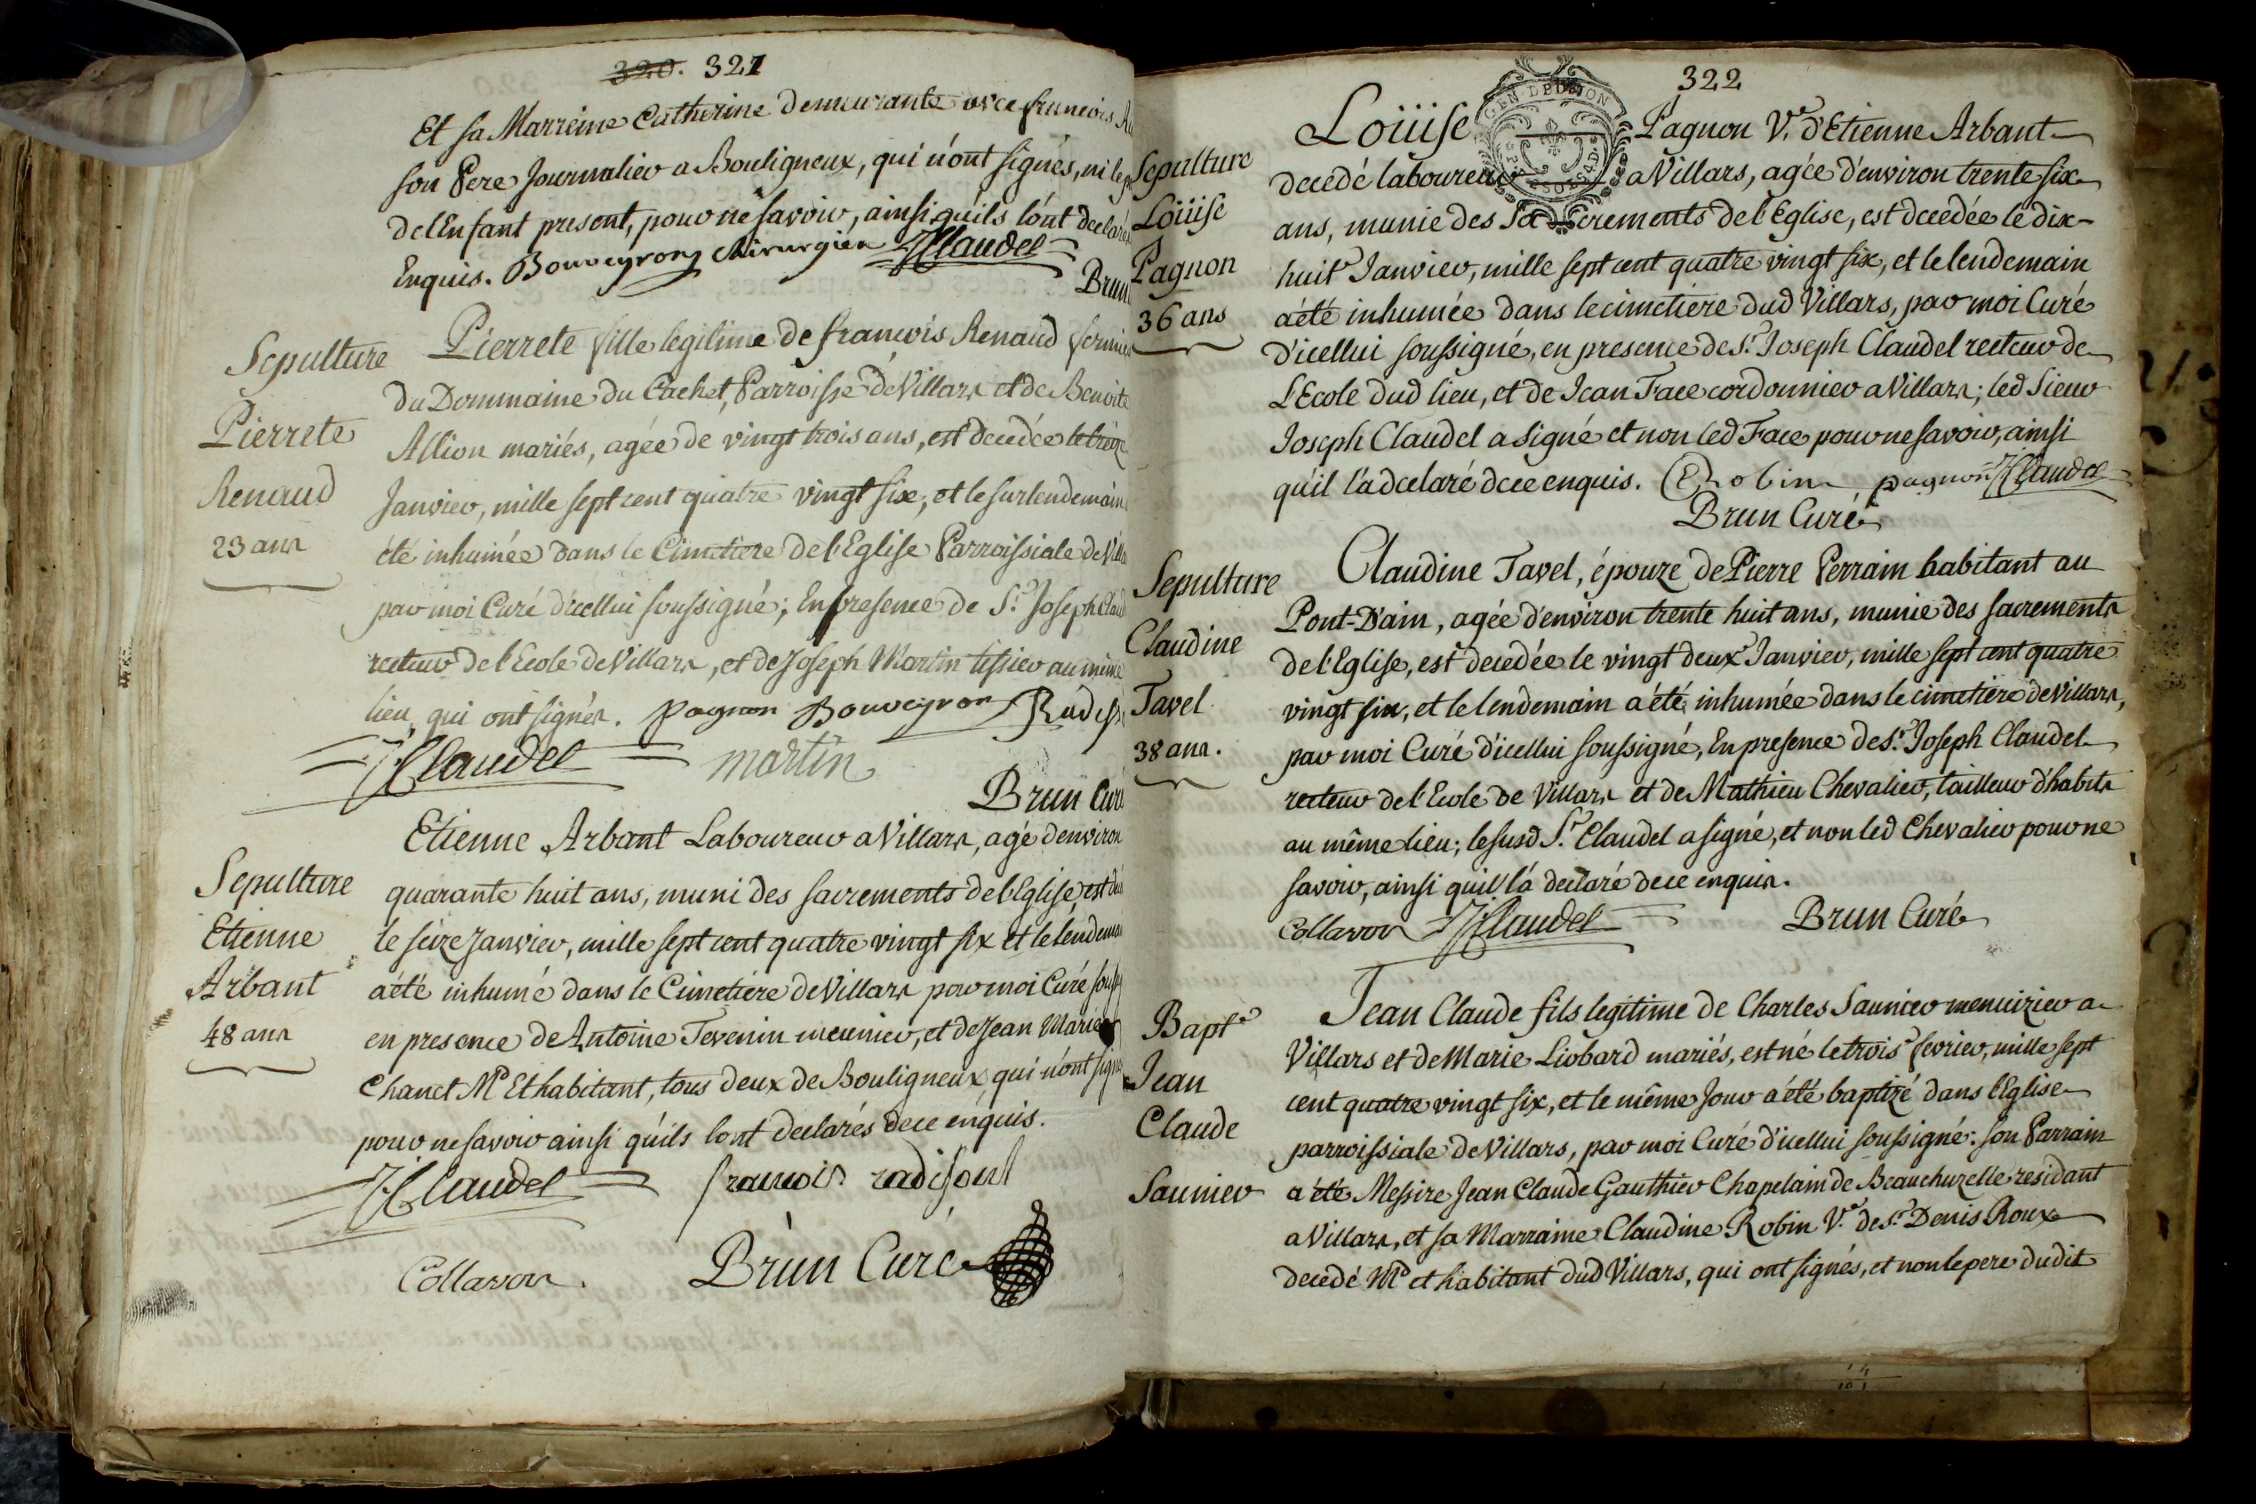 320. 321
Et sa Marreine Catherine demeurante avec francois
son Pere Journalier a Bouligneux, qui n'ont signés, ni le
de l'Enfant present, pour ne savoir, ainsi qu'ils l'ont declaré
Enquis. Bouveyron chirurgien JClaudel
Brun
Sepulture
Pierrete
Renaud
23 ans
Pierrete fille legitime de francois Renaud fermier
du Dommaine du Cachet, Parroisse de Villars et de Benoite
Allion mariés, agée de vingt trois ans, est decedée le treize
Janvier, mille sept cent quatre vingt six, et le surlendemain
été inhumée dans le Cimetiere de l'Eglise Parroissiale de Villa
par moi Curé d'icellui soussigné; En presence de Sr. Joseph Claud
recteur de l'Ecole de Villars, et de Joseph Martin tissier au même
lieu, qui ont signés. pagnon Bouveyron Radiss
JClaudel martin
Brun Curé
Sepulture
Etienne
Arbant
48 ans
Etienne Arbant Laboureur a Villars, agé d'environ
quarante huit ans, muni des sacrements de l'Eglise, est
le seize Janvier, mille sept cent quatre vingt six et le lendema
a été inhumé dans le Cimetiere de Villars par moi Curé souss
en presence de Antoine Tevenin meunier, et de Jean Marie
Chanet Md. Et habitant, tous deux de Bouligneux, qui n'ont signé
pour ne savoir ainsi qu'ils l'ont declarés de ce enquis.
JClaudel francois radisont
Collavon Brun Curé
322
Sepulture
Loüise
Pagnon
36 ans
Loüise Pagnon Ve. d'Etienne Arbant
GEN DE DIJON
decedé laboureur a Villars, agée d'environ trente six
ans, munie des Sacrements de l'Eglise, est decedée le dix-
huit Janvier, mille sept cent quatre vingt six, et le lendemain
a été inhumée dans le cimetiere dud Villars, par moi Curé
d'icellui soussigné, en presence de Sr. Joseph Claudel recteur de
L'Ecole dud lieu, et de Jean Face cordonnier a Villars; led Sieur
Joseph Claudel a signé et non led Face pour ne savoir, ainsi
qu'il l'a declaré de ce enquis. Robin pagnon JClaudel
Brun Curé
Sepulture
Claudine
Tavel
38 ans.
Claudine Tavel, épouze de Pierre Perrain habitant au
Pont-D'ain, agée d'environ trente huit ans, munie des sacrements
de l'Eglise, est decedée le vingt deux Janvier, mille sept cent quatre
vingt six, et le lendemain a été inhumée dans le cimetiere de Villars,
par moi Curé d'icellui soussigné, En presence de Sr. Joseph Claudel
recteur de l'Ecole de Villars et de Mathieu Chevalier, tailleur d'habits
au même lieu; le susd Sr. Claudel a signé, et non led Chevalier pour ne
savoir, ainsi qu'il l'a declaré de ce enquis.
Collavon JClaudel Brun Curé
Bapt.e
Jean
Claude
Saunier
Jean Claude fils legitime de Charles Saunier menuizier a
Villars et de Marie Liobard mariés, est né le trois fevrier, mille sept
cent quatre vingt six, et le même Jour a été baptizé dans l'Eglise
parroissiale de Villars, par moi Curé d'icellui soussigné: son Parrain
a été Messire Jean Claude Gauthier Chapelain de Beauchuzelle residant
a Villars, et sa Marraine Claudine Robin Ve. de Sr. Denis Roux
decedé Md. et habitant dud Villars, qui ont signés, et non le pere dudit